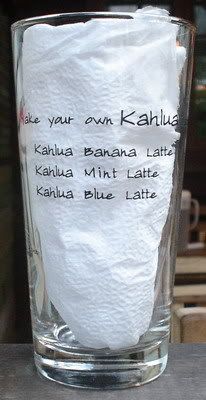 ake your own Kahlua
Kahlua Banana Latte
Kahlua Mint Latte
Kahlua Blue Latte